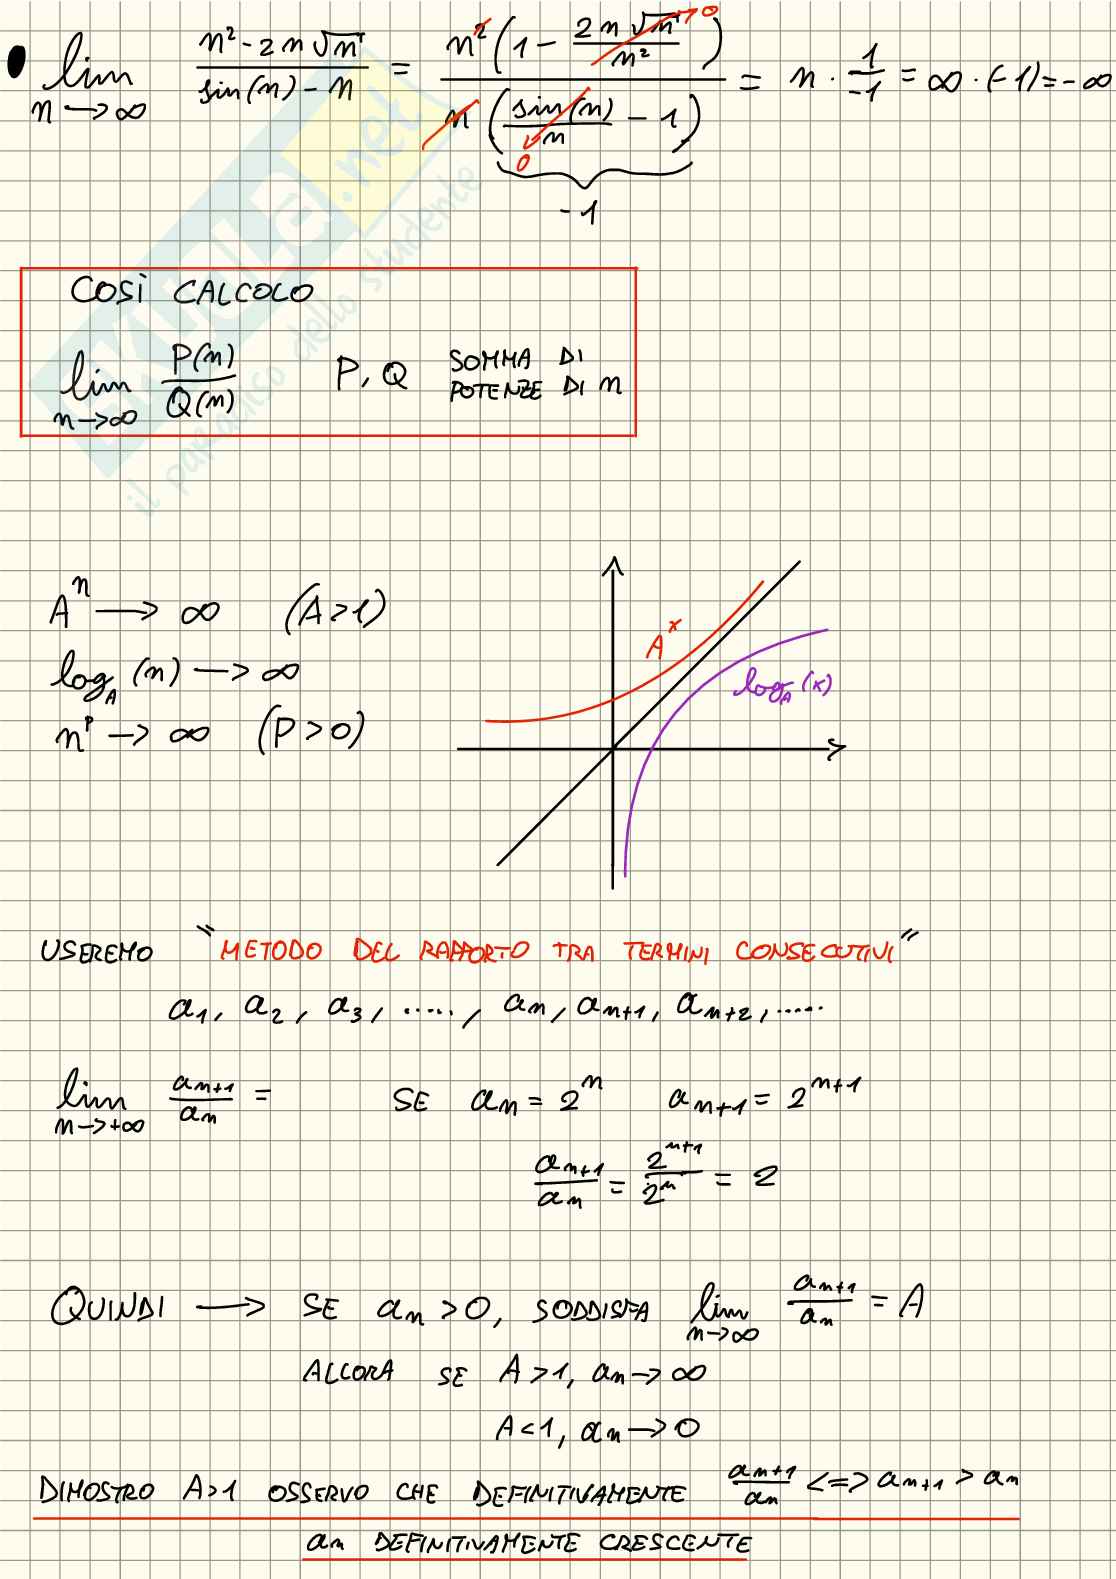 • lim n→∞ (n² - 2n√n)/(sin(n) - n) = n²(1 - 2n√n/n² → 0)/(n(sin(n)/n → 0 - 1)) = n · 1/-1 = ∞ · (-1) = -∞
-1
COSÌ CALCOLO
lim n→∞ P(n)/Q(n)   P, Q SOMMA DI POTENZE DI n
Aⁿ → ∞ (A>1)
log_A (n) → ∞
nᴾ → ∞ (P>0)
Aˣ
log_A (x)
USEREMO "METODO DEL RAPPORTO TRA TERMINI CONSECUTIVI"
a₁, a₂, a₃, ....., aₙ, aₙ₊₁, aₙ₊₂, .....
lim n→+∞ aₙ₊₁/aₙ =   SE aₙ = 2ⁿ   aₙ₊₁ = 2ⁿ⁺¹
aₙ₊₁/aₙ = 2ⁿ⁺¹/2ⁿ = 2
QUINDI → SE aₙ > 0, SODDISFA lim n→∞ aₙ₊₁/aₙ = A
ALLORA SE A > 1, aₙ → ∞
A < 1, aₙ → 0
DIMOSTRO A>1 OSSERVO CHE DEFINITIVAMENTE aₙ₊₁/aₙ <=> aₙ₊₁ > aₙ
aₙ DEFINITIVAMENTE CRESCENTE
SKUOLA.net
il paradiso dello studente